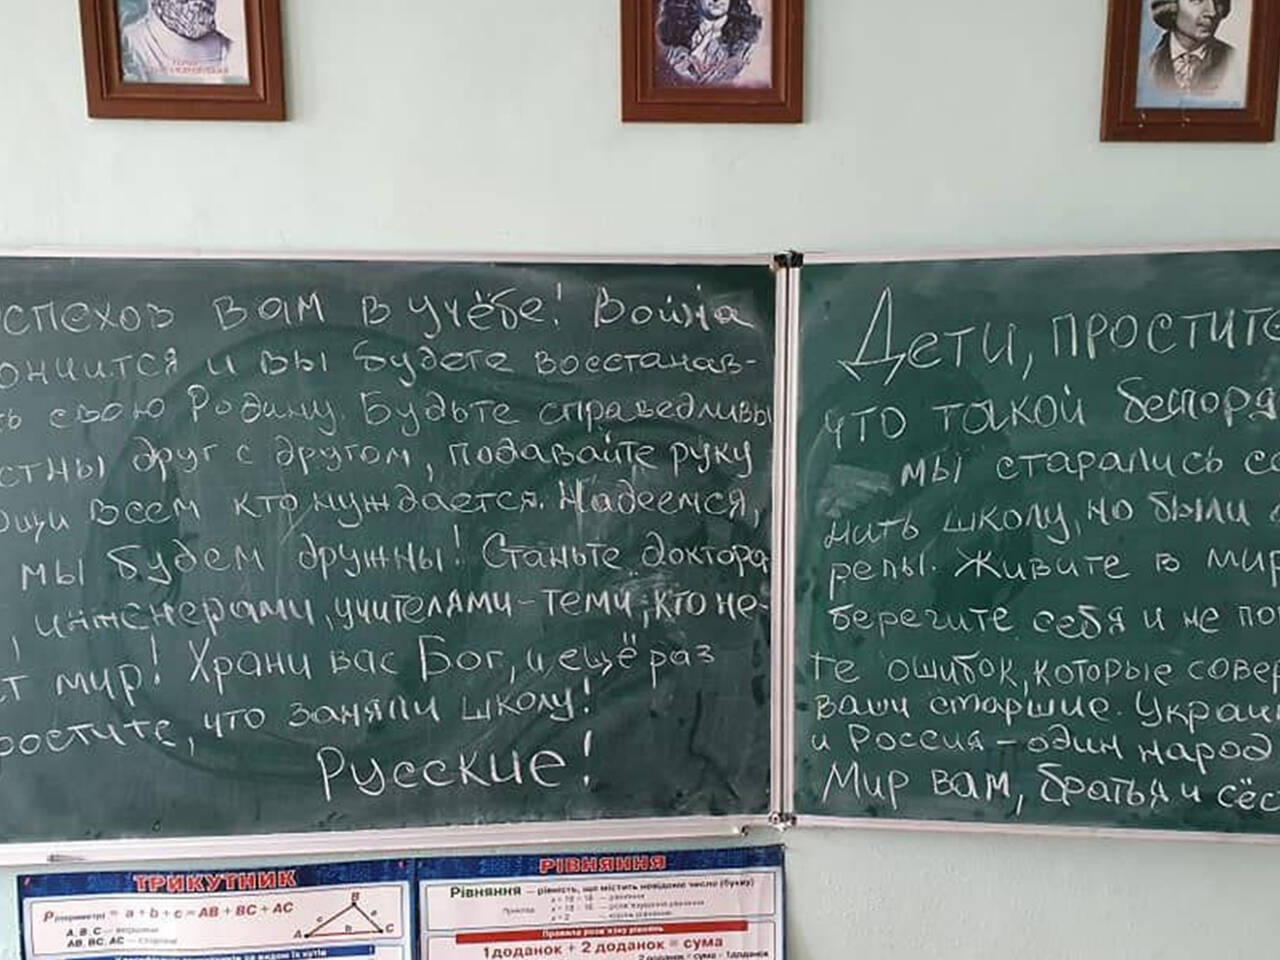 спехов вам в учёбе! Война
ончится и вы будете восстанав-
ть свою Родину. Будьте справедливы
стны друг с другом, подавайте руку
ощи всем кто нуждается. Надеемся,
мы будем дружны! Станьте доктора
, инженерами, учителями – теми, кто не-
ет мир! Храни вас Бог, и ещё раз
ростите, что заняли школу!
Русские!
Дети, простите
что такой беспоря
мы старались со
нить школу, но были
релы. Живите в мир
берегите себя и не по
те ошибок, которые совер
ваши старшие. Украи
и Россия – один народ
Мир вам, братья и сёс
ТРИКУТНИК
P = a + b + c = AB + BC + AC
A, B, C — вершини
AB, BC, AC — сторони
A B C c a b
РІВНЯННЯ
Рівняння — рівність, що містить невідоме число (букву)
Правила розв'язку рівнянь
1доданок + 2 доданок = сума
2 доданок = сума - 1доданок